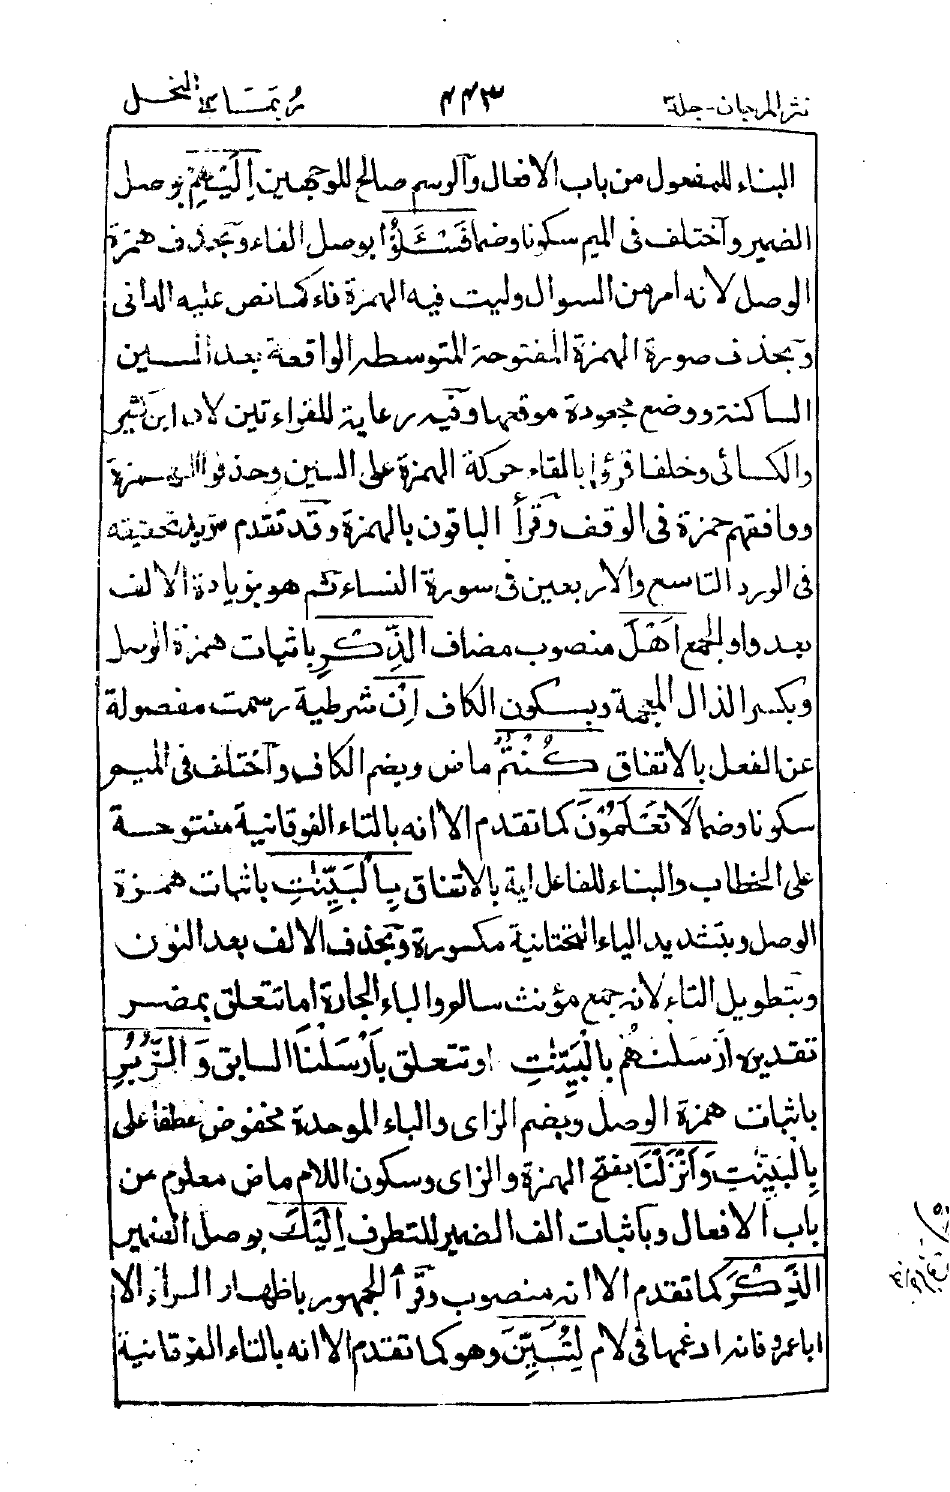 نثر المرجان - جلد ٣ ٤٤٣ ربما ١٤ النحل
البناء للمفعول من باب الافعال وآلوسم صالح للوجهين اِلَيْهِمْ بوصل
الضمير وآختلف فى الميم سكونا وضما فَسْـَٔلُوْٓا بوصل الفاء وبحذف همزة
الوصل لانه امر من السوال وليت فيه الهمزة فاء كما نص عليه الدانى
وبحذف صورة الهمزة المفتوحة المتوسطه الواقعة بعد السين
الساكنة ووضع مجعودة موقعها وفيه رعاية للقراءتين لان ابن كثير
والكسائى وخلفا قرؤا بالقاء حركة الهمزة على السين وحذفوا الهمزة
ووافقهم حمزة فى الوقف وقرأ الباقون بالهمزة وقد تقدم مزيد تحقيقه
فى الورد التاسع والاربعين فى سورة النساء ثم هو بزيادة الالف
بعد واو الجمع اَهْلَ منصوب مضاف الذِّكْرِ باثبات همزة الوصل
وبكسر الذال المعجمة وبسكون الكاف اِنْ شرطية رسمت مفصولة
عن الفعل بالاتفاق كُنْتُمْ ماض وبضم الكاف وآختلف فى الميم
سكونا وضما لَا تَعْلَمُوْنَ كما تقدم الا انه بالتاء الفوقانية مفتوحة
على الخطاب والبناء للفاعل اية بالاتفاق بِالْبَيِّنٰتِ باثبات همزة
الوصل وبتشديد الياء التحتانية مكسورة وبحذف الالف بعد النون
وبتطويل التاء لانه جمع مؤنث سالم والباء الجارة اما تتعلق بمضمر
تقديره اَرْسَلْنٰهُمْ بِالْبَيِّنٰتِ او تتعلق بِاَرْسَلْنَا السابق وَالزُّبُرِ
باثبات همزة الوصل وبضم الزاى والباء الموحدة مخفوض عطفا على
بِالْبَيِّنٰتِ وَاَنْزَلْنَا بفتح الهمزة والزاى وسكون اللام ماض معلوم من
باب الافعال وباثبات الف الضمير للتطرف اِلَيْكَ بوصل الضمير
الذِّكْرَ كما تقدم الا انه منصوب وقرأ الجمهور باظهار الراء الا
ابا عمرو فانه ادغمها فى لام لِتُبَيِّنَ وهو كما تقدم الا انه بالتاء الفوقانية